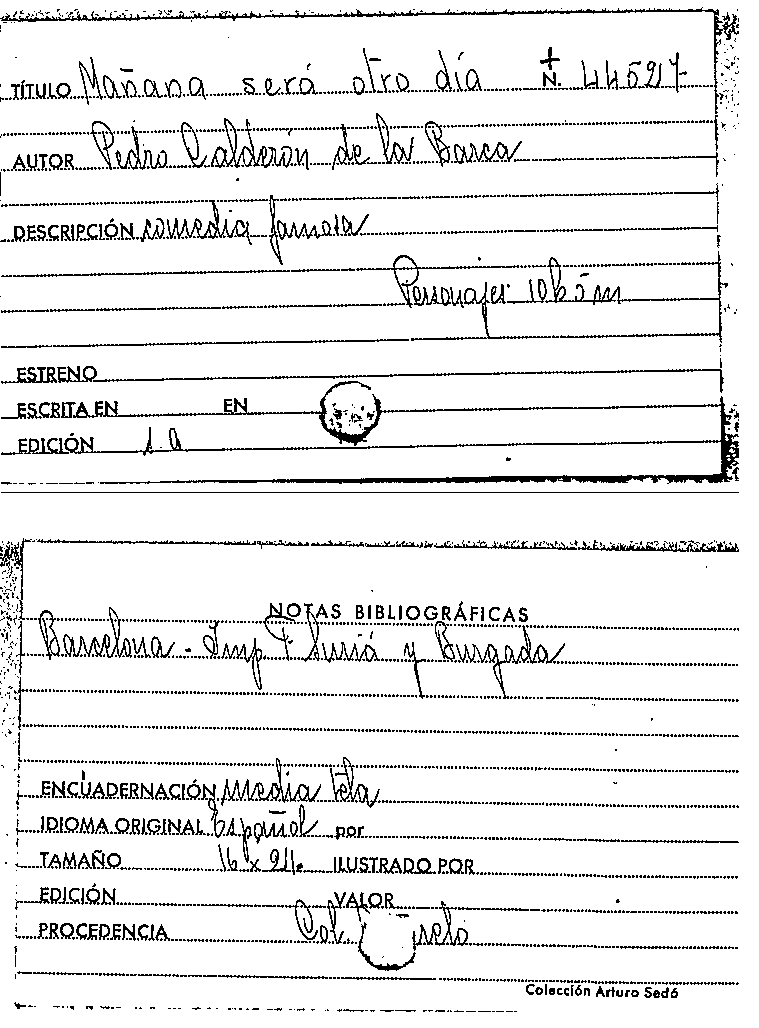 TÍTULO Mañana será otro día N. 44527
AUTOR Pedro Calderón de la Barca
DESCRIPCIÓN comedia famosa
Personajes 10 h 5 m
ESTRENO
ESCRITA EN EN
EDICIÓN 1.a
NOTAS BIBLIOGRÁFICAS
Barcelona - Imp F Suriá y Burgada
ENCUADERNACIÓN media tela
IDIOMA ORIGINAL Español por
TAMAÑO 16 x 21. ILUSTRADO POR
EDICIÓN VALOR
PROCEDENCIA Col.
Colección Arturo Sedó